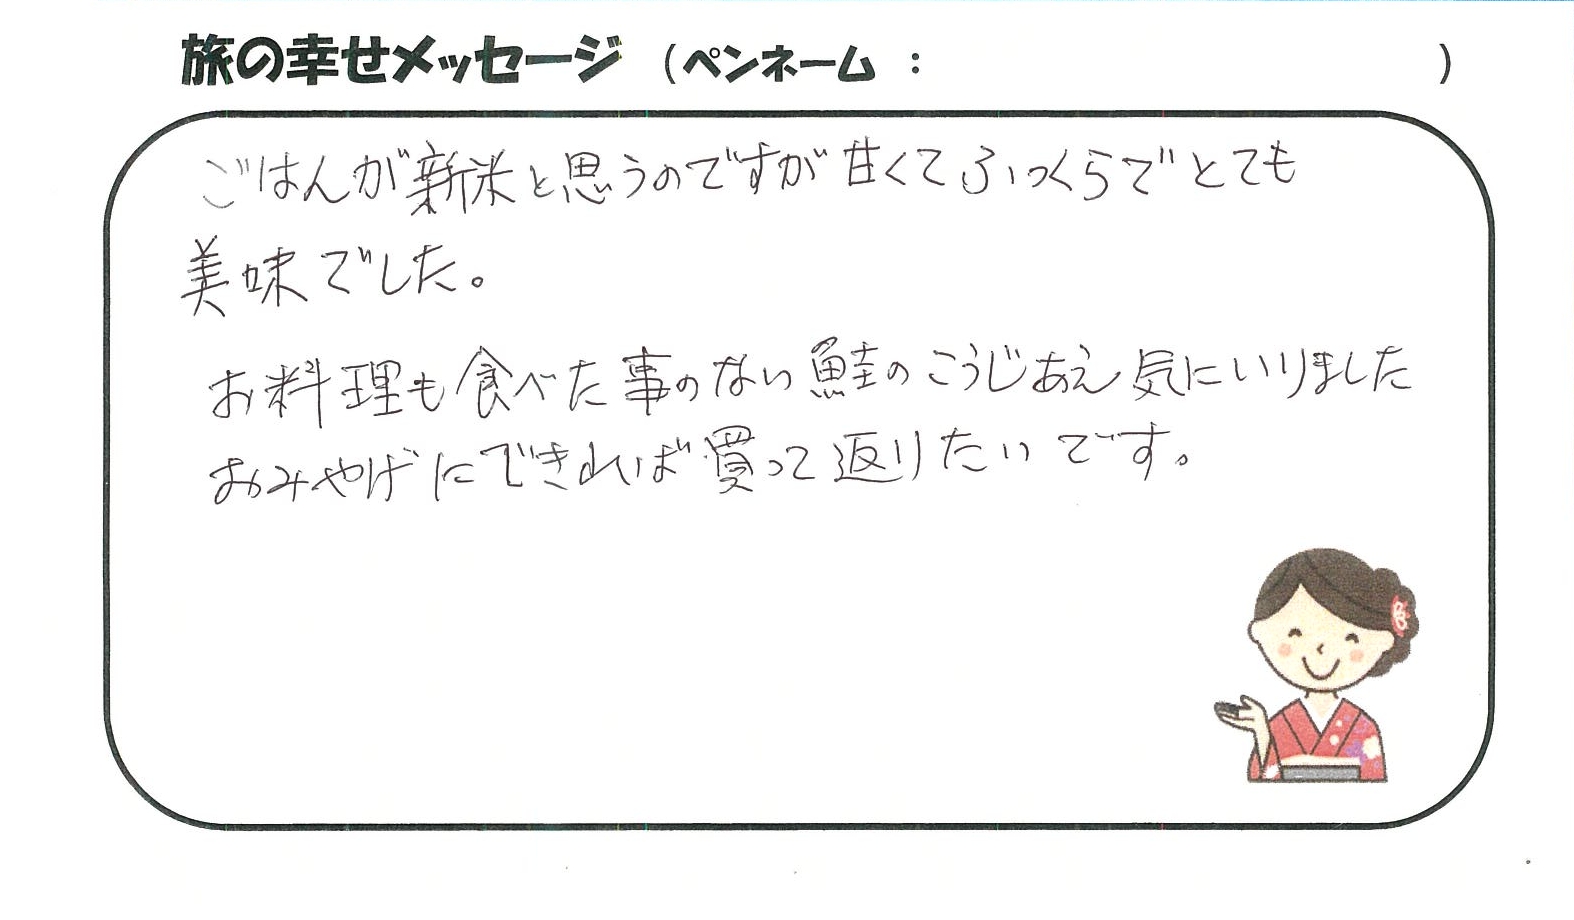 旅の幸せメッセージ (ペンネーム : )
ごはんが新米と思うのですが甘くてふっくらでとても
美味でした。
お料理も食べた事のない鮭のこうじあえ気にいりました
おみやげにできれば買って返りたいです。